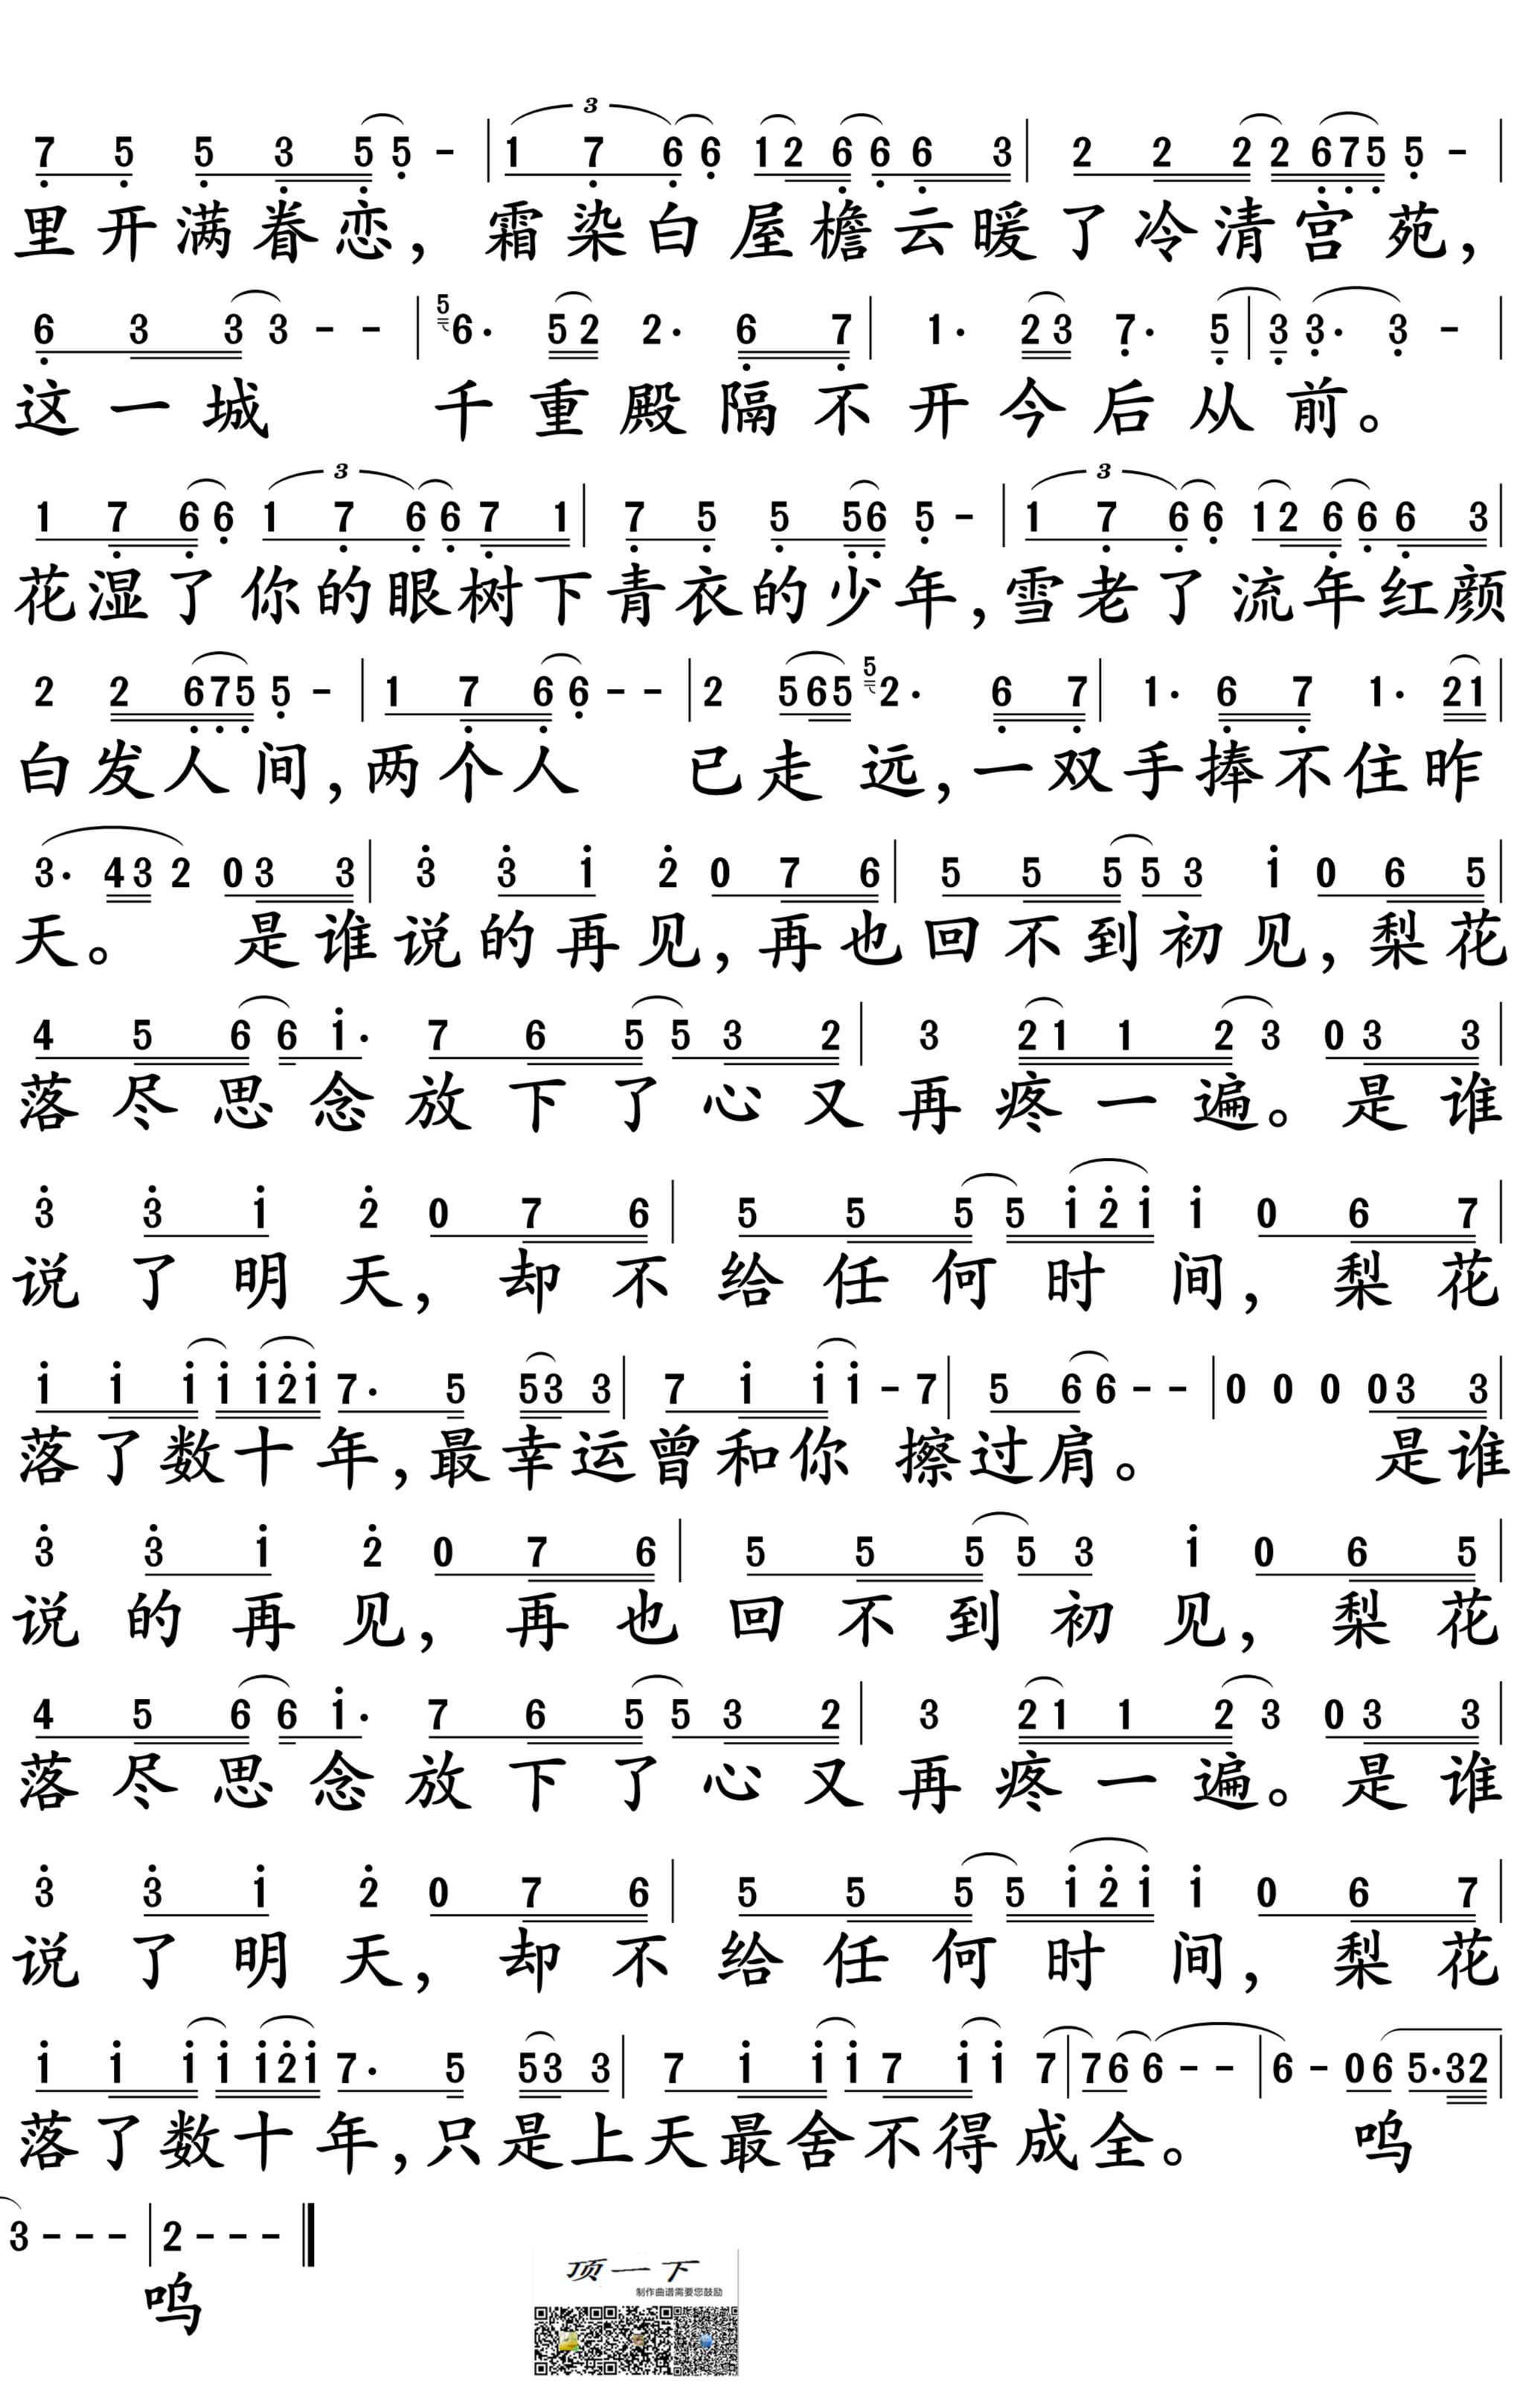 7 5 5 3 5 5 - | 1 7 6 6 1 2 6 6 6 3 | 2 2 2 2 6 7 5 5 - |
3
里开满眷恋，霜染白屋檐云暖了冷清宫苑，
6 3 3 3 - - | 5 6· 5 2 2· 6 7 | 1· 2 3 7· 5 | 3 3· 3 - |
这一城 千重殿隔不开今后从前。
1 7 6 6 1 7 6 6 7 1 | 7 5 5 5 6 5 - | 1 7 6 6 1 2 6 6 6 3 |
3 3
花湿了你的眼树下青衣的少年，雪老了流年红颜
2 2 6 7 5 5 - | 1 7 6 6 - - | 2 5 6 5 5 2· 6 7 | 1· 6 7 1· 2 1 |
白发人间，两个人 已走远，一双手捧不住昨
3· 4 3 2 0 3 3 | 3 3 1 2 0 7 6 | 5 5 5 5 3 1 0 6 5 |
天。 是谁说的再见，再也回不到初见，梨花
4 5 6 6 1· 7 6 5 5 3 2 | 3 2 1 1 2 3 0 3 3 |
落尽思念放下了心又再疼一遍。是谁
3 3 1 2 0 7 6 | 5 5 5 5 1 2 1 1 0 6 7 |
说了明天，却不给任何时间，梨花
1 1 1 1 1 2 1 7· 5 5 3 3 | 7 1 1 1 - 7 | 5 6 6 - - | 0 0 0 0 3 3 |
落了数十年，最幸运曾和你 擦过肩。 是谁
3 3 1 2 0 7 6 | 5 5 5 5 3 1 0 6 5 |
说的再见，再也回不到初见，梨花
4 5 6 6 1· 7 6 5 5 3 2 | 3 2 1 1 2 3 0 3 3 |
落尽思念放下了心又再疼一遍。是谁
3 3 1 2 0 7 6 | 5 5 5 5 1 2 1 1 0 6 7 |
说了明天，却不给任何时间，梨花
1 1 1 1 1 2 1 7· 5 5 3 3 | 7 1 1 1 7 1 1 7 | 7 6 6 - - | 6 - 0 6 5· 3 2 |
落了数十年，只是上天最舍不得成全。 呜
3 - - - | 2 - - - ‖
呜
顶一下
制作曲谱需要您鼓励